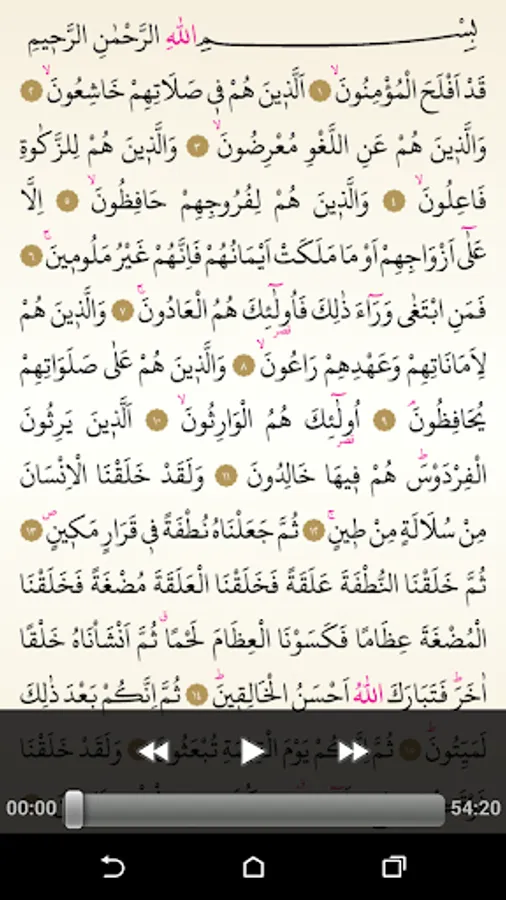 بِسْمِ اللهِ الرَّحْمٰنِ الرَّح۪يمِ
قَدْ اَفْلَحَ الْمُؤْمِنُونَۙ ﴿١﴾ اَلَّذ۪ينَ هُمْ ف۪ي صَلَاتِهِمْ خَاشِعُونَۙ ﴿٢﴾
وَالَّذ۪ينَ هُمْ عَنِ اللَّغْوِ مُعْرِضُونَۙ ﴿٣﴾ وَالَّذ۪ينَ هُمْ لِلزَّكٰوةِ
فَاعِلُونَۙ ﴿٤﴾ وَالَّذ۪ينَ هُمْ لِفُرُوجِهِمْ حَافِظُونَۙ ﴿٥﴾ اِلَّا
عَلٰٓى اَزْوَاجِهِمْ اَوْ مَا مَلَكَتْ اَيْمَانُهُمْ فَاِنَّهُمْ غَيْرُ مَلُوم۪ينَۚ ﴿٦﴾
فَمَنِ ابْتَغٰى وَرَٓاءَ ذٰلِكَ فَاُو۬لٰٓئِكَ هُمُ الْعَادُونَۚ ﴿٧﴾ وَالَّذ۪ينَ هُمْ
لِاَمَانَاتِهِمْ وَعَهْدِهِمْ رَاعُونَۙ ﴿٨﴾ وَالَّذ۪ينَ هُمْ عَلٰى صَلَوَاتِهِمْ
يُحَافِظُونَۢ ﴿٩﴾ اُو۬لٰٓئِكَ هُمُ الْوَارِثُونَۙ ﴿١٠﴾ اَلَّذ۪ينَ يَرِثُونَ
الْفِرْدَوْسَۜ هُمْ ف۪يهَا خَالِدُونَ ﴿١١﴾ وَلَقَدْ خَلَقْنَا الْاِنْسَانَ
مِنْ سُلَالَةٍ مِنْ ط۪ينٍۚ ﴿١٢﴾ ثُمَّ جَعَلْنَاهُ نُطْفَةً ف۪ي قَرَارٍ مَك۪ينٍۖ ﴿١٣﴾
ثُمَّ خَلَقْنَا النُّطْفَةَ عَلَقَةً فَخَلَقْنَا الْعَلَقَةَ مُضْغَةً فَخَلَقْنَا
الْمُضْغَةَ عِظَامًا فَكَسَوْنَا الْعِظَامَ لَحْمًاۗ ثُمَّ اَنْشَاْنَاهُ خَلْقًا
اٰخَرَۜ فَتَبَارَكَ اللهُ اَحْسَنُ الْخَالِق۪ينَۜ ﴿١٤﴾ ثُمَّ اِنَّكُمْ بَعْدَ ذٰلِكَ
لَمَيِّتُونَۜ ثُمَّ اِنَّكُمْ يَوْمَ الْقِيٰمَةِ تُبْعَثُونَ وَلَقَدْ خَلَقْنَا
00:00 54:20